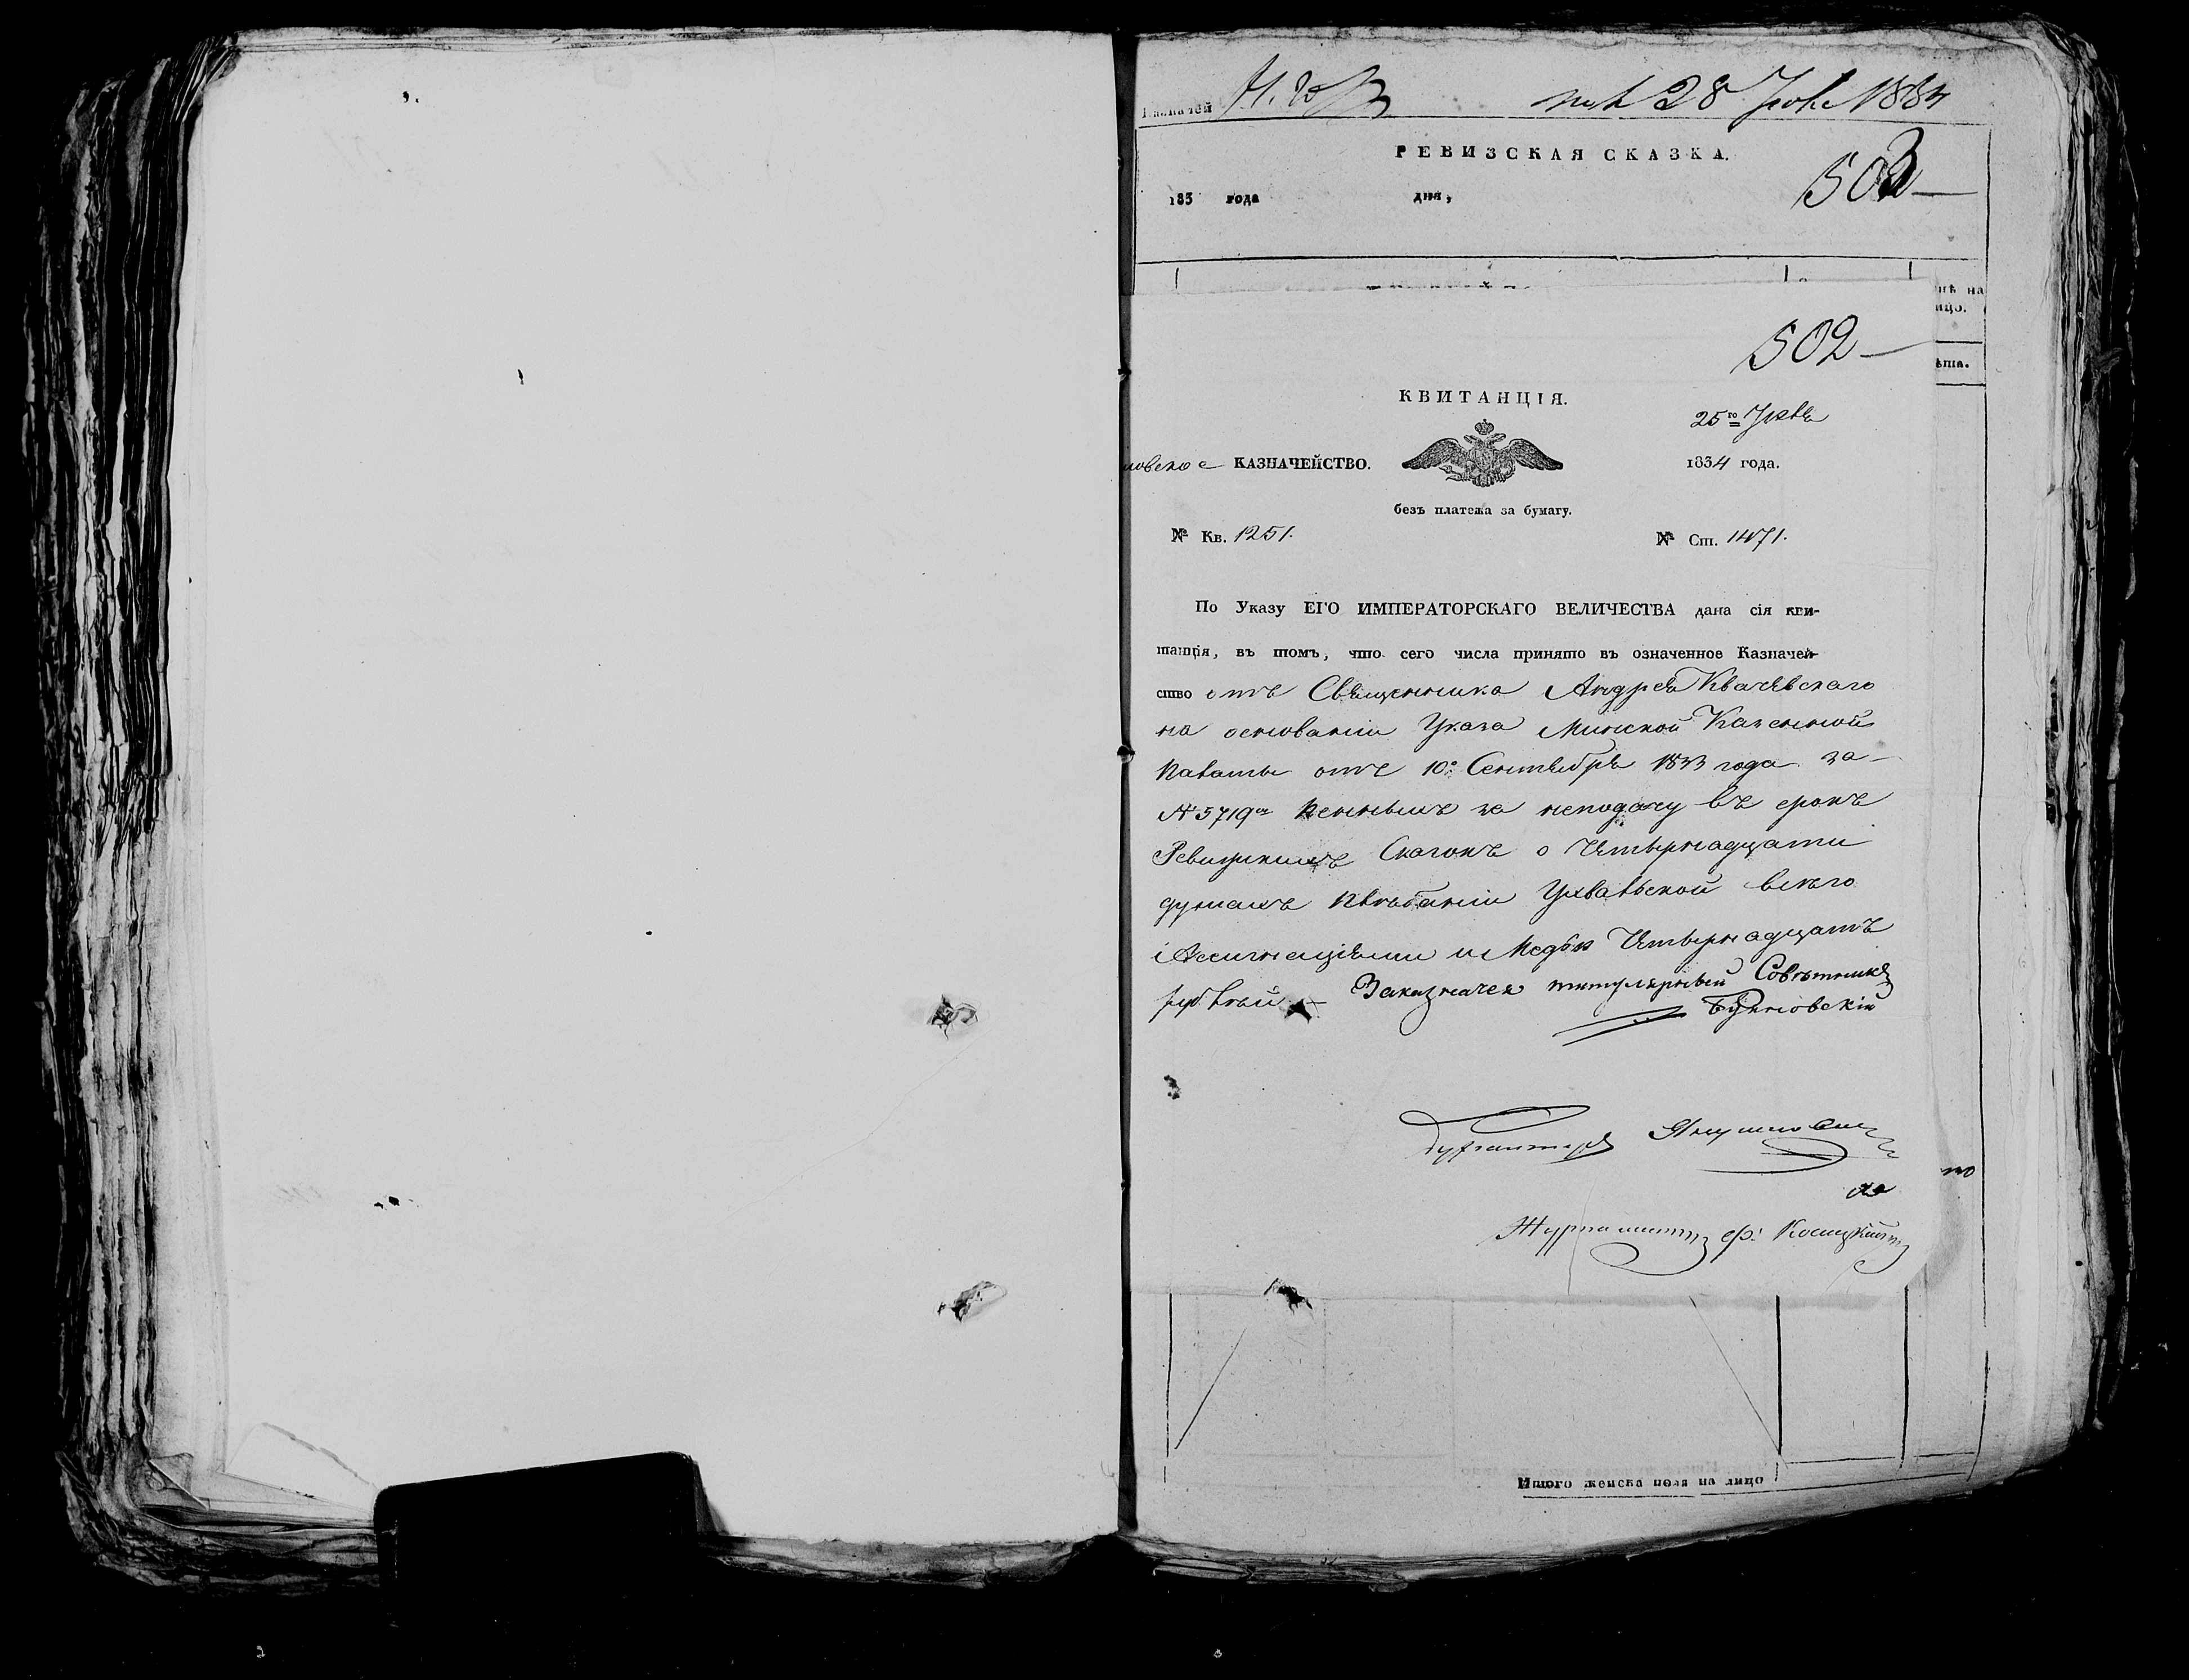 Казначей
28 1834
РЕВИЗСКАЯ СКАЗКА.
503
183 года дня,
нѣ на
лицо.
ѣта.
502
КВИТАНЦІЯ.
25го
КАЗНАЧЕЙСТВО.
1834 года.
безъ платежа за бумагу.
№ Кв. 1251.
№ Ст. 1471.
По Указу ЕГО ИМПЕРАТОРСКАГО ВЕЛИЧЕСТВА дана сія кви-
танція, въ томъ, что сего числа принято въ означенное Казначей-
ство отъ Священника Андрея Квачевскаго
на основаніи Указа Минской Казенной
Палаты отъ 10го Сентября 1833 года за
№ 5719м пенныхъ за неподачу въ срокъ
Ревизскихъ Сказокъ о Четырнадцати
душахъ Плебаніи Ухвальской всего
Ассигнаціями и Медью Четырнадцать
рублей. — Заказначея титулярный Совѣтникъ
Бухгалтеръ
Журналистъ Ф. Косицкій
но
Итого женска пола на лицо